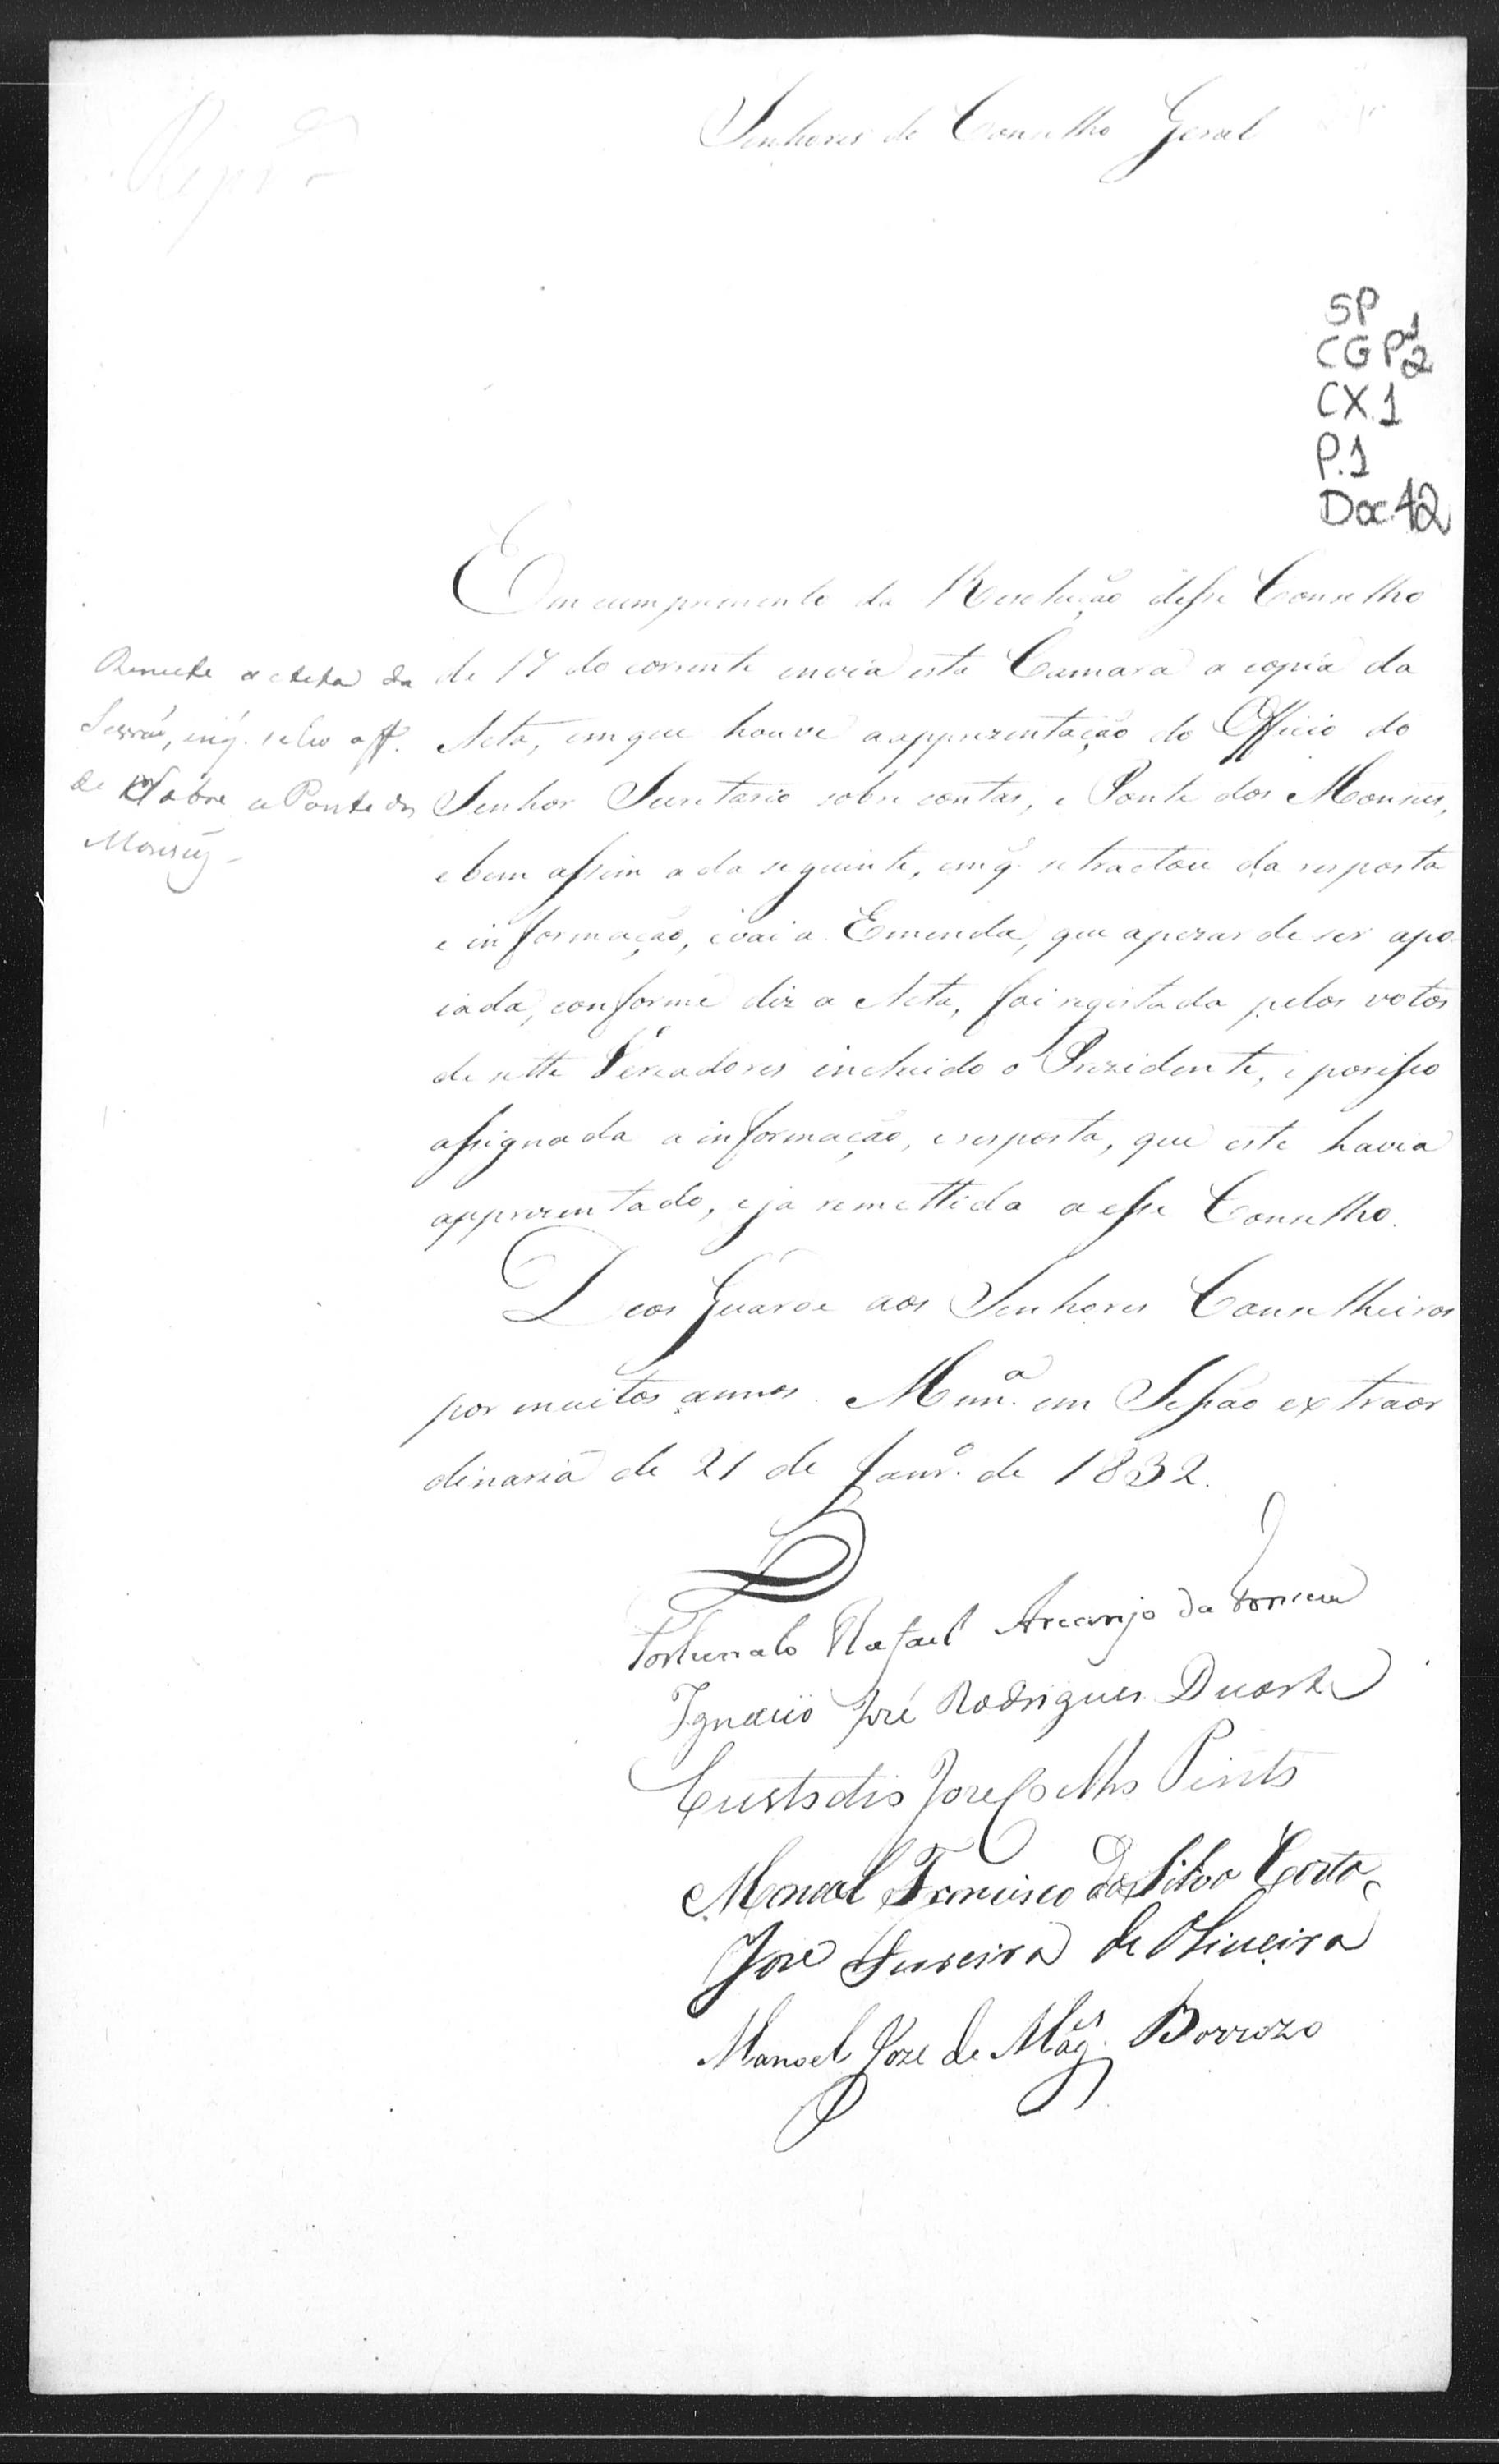 Senhores do Conselho Geral
SP
CGP1
2
CX.1
P.1
Doc 42
Em cumprimento da Resolução desse Conselho
de 17 do corrente envia esta Camara a copia da
Acta, em que houve a apprezentação do Officio do
Senhor Secretario sobre contas, e Ponte dos Monses,
e bem assim a da seguinte, em q. se tractou da resposta
e informação, e vai a Emenda, que apezar de ser apo-
iada, conforme diz a Acta, foi regeitada pelos votos
de sette Vereadores incluido o Prezidente, e por isso
assignada a informação, e resposta, que este havia
apprezentado, e já remettida a esse Conselho.
Remete a acta da
Sessão, em q. se leo off.
sobre a Ponte dos
Deos Guarde aos Senhores Conselheiros
por muitos annos. Mnn.ª em Sessão extraor
dinaria de 21 de Janr.º de 1832.
Fortunato Rafael Arcanjo da Fonseca
Ignacio José Rodrigues Duarte
Custodio Jose Coelho Pinto
Manoel Francisco da Silva Costa
Jose Ferreira de Oliveira
Manoel Joze de Mag.es Borrozo